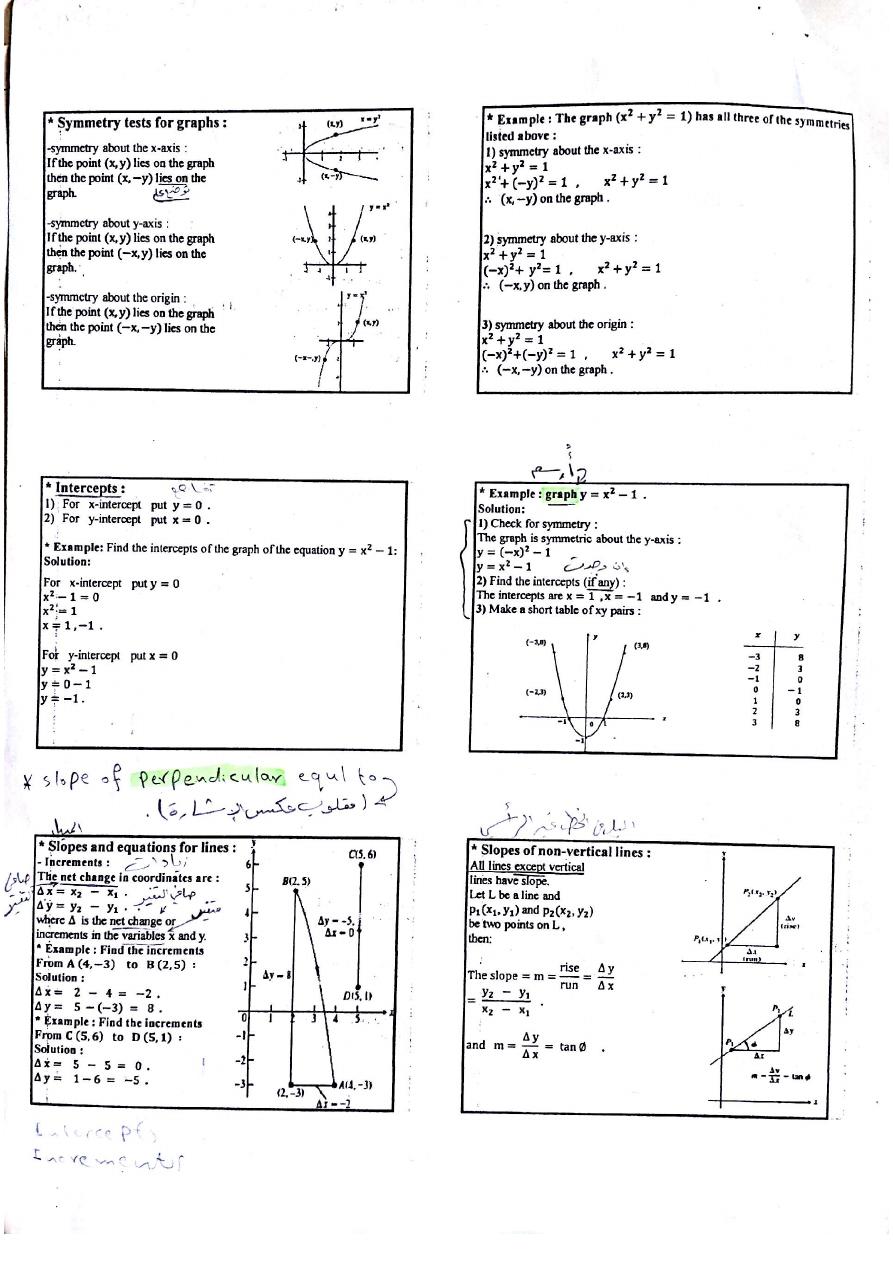 * Symmetry tests for graphs :
-symmetry about the x-axis :
If the point (x, y) lies on the graph
then the point (x, −y) lies on the
graph.
-symmetry about y-axis :
If the point (x, y) lies on the graph
then the point (−x, y) lies on the
graph.
-symmetry about the origin :
If the point (x, y) lies on the graph
then the point (−x, −y) lies on the
graph.
x = y²
(x,y)
(x,−y)
y = x²
(−x,y)
(x,y)
(x,y)
* Example : The graph (x² + y² = 1) has all three of the symmetries
listed above :
1) symmetry about the x-axis :
x² + y² = 1
x² + (−y)² = 1 , x² + y² = 1
∴ (x, −y) on the graph .
2) symmetry about the y-axis :
x² + y² = 1
(−x)² + y² = 1 , x² + y² = 1
∴ (−x, y) on the graph .
3) symmetry about the origin :
x² + y² = 1
(−x)²+(−y)² = 1 , x² + y² = 1
∴ (−x, −y) on the graph .
* Intercepts :
1) For x-intercept put y = 0 .
2) For y-intercept put x = 0 .
* Example: Find the intercepts of the graph of the equation y = x² − 1:
Solution:
For x-intercept put y = 0
x² − 1 = 0
x² = 1
x = 1, −1 .
For y-intercept put x = 0
y = x² − 1
y = 0 − 1
y = −1.
* Example : graph y = x² − 1 .
Solution:
1) Check for symmetry :
The graph is symmetric about the y-axis :
y = (−x)² − 1
y = x² − 1
إن وجدت
2) Find the intercepts (if any) :
The intercepts are x = 1 , x = −1 and y = −1 .
3) Make a short table of xy pairs :
(−3,8) y (3,8)
(−2,3) (2,3)
−1 0 1 x
−1
x y
−3 8
−2 3
−1 0
0 −1
1 0
2 3
3 8
* slope of perpendicular equl to
(مقلوب عكس الإشارة).
الميل
* Slopes and equations for lines :
- Increments :
زيادات
The net change in coordinates are :
Δx = x₂ − x₁ .
صافي التغير
Δy = y₂ − y₁ .
where Δ is the net change or
increments in the variables x and y.
* Example : Find the increments
From A (4, −3) to B (2, 5) :
Solution :
Δx = 2 − 4 = −2 .
Δy = 5 − (−3) = 8 .
* Example : Find the increments
From C (5, 6) to D (5, 1) :
Solution :
Δx = 5 − 5 = 0 .
Δy = 1 − 6 = −5 .
y
C(5, 6)
B(2, 5)
Δy = −5.
Δx = 0
Δy = 8
D(5, 1)
6
5
4
3
2
1
0 1 2 3 4 5 x
−1
−2
−3
(2, −3)
A(4, −3)
Δx = −2
* Slopes of non-vertical lines :
All lines except vertical
lines have slope.
Let L be a line and
p₁(x₁, y₁) and p₂(x₂, y₂)
be two points on L ,
then:
The slope = m = rise/run = Δy/Δx
= (y₂ − y₁)/(x₂ − x₁) .
and m = Δy/Δx = tan Ø .
P₂(x₂, y₂)
Δy
(rise)
Δx
(run)
x
y
P₂ L
Δy
P₁ ϕ
Δx
m = Δy/Δx = tan ϕ
x
Intercepts
Increments